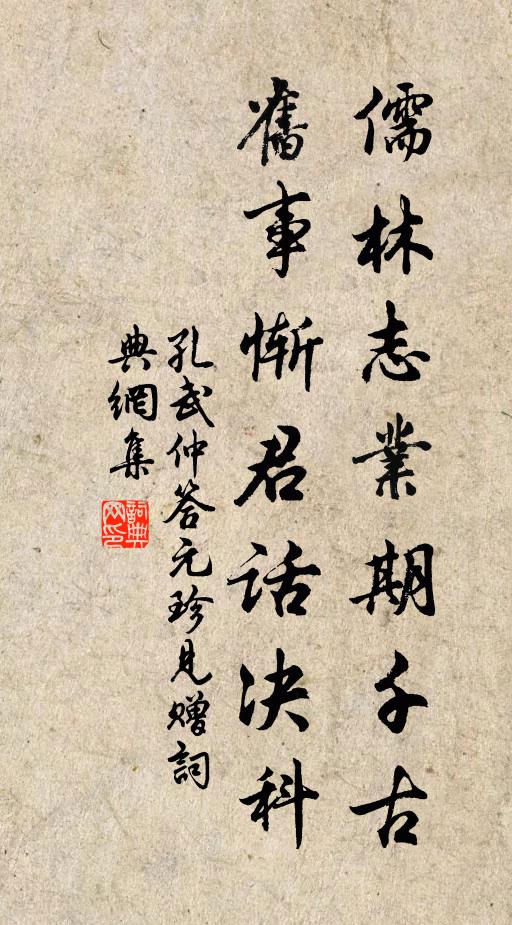 儒林志業期千古
舊事慚君話决科
孔武仲答元珍見赠詞
典網集
詞典网印